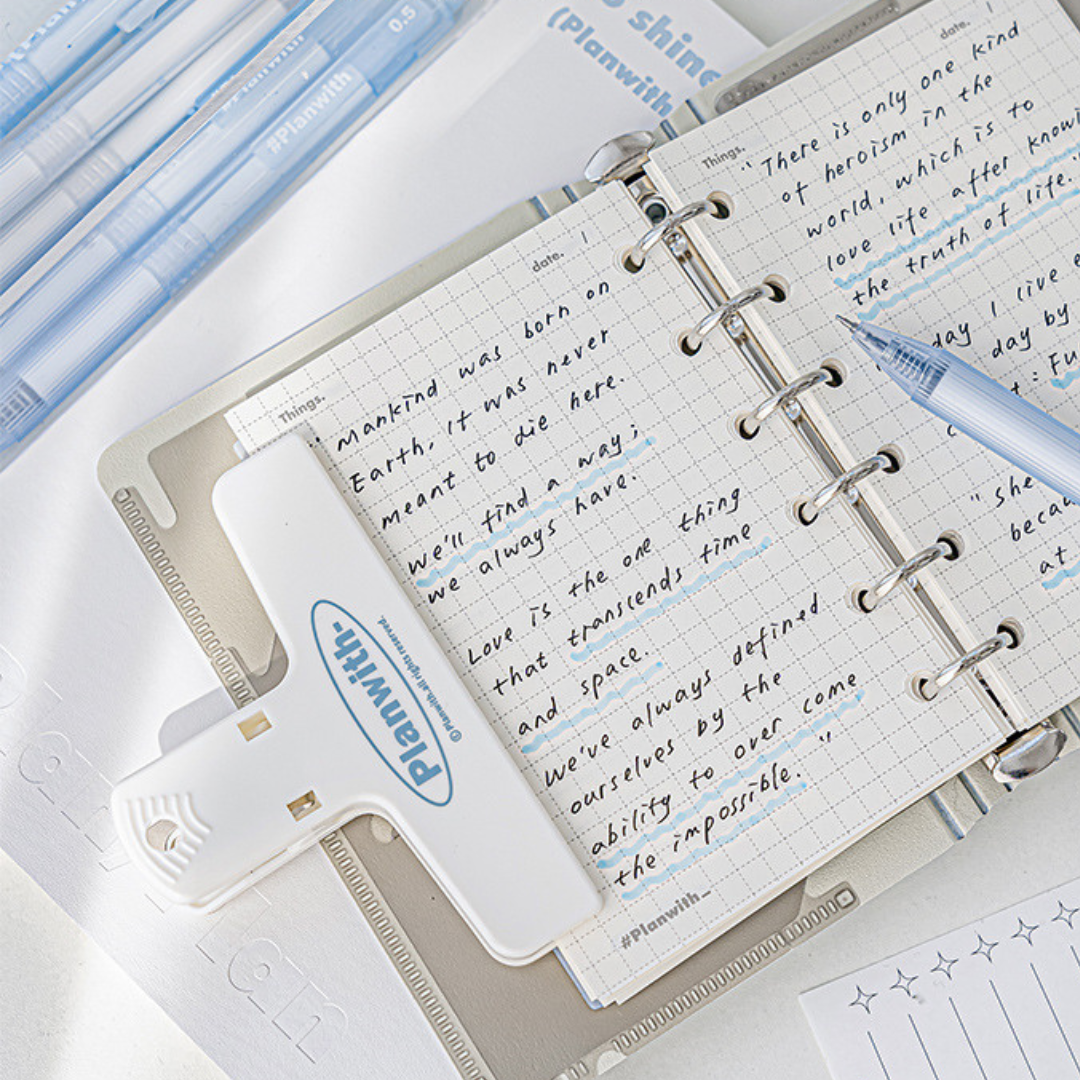 0.5
#Planwith
shine
(Planwith
date.
Things.
" Mankind was born on
Earth, it was never
meant to die here.
we'll find a way;
we always have.
Love is the one thing
that transcends time
and space.
We've always defined
ourselves by the
ability to over come
the impossible. "
#Planwith_
Planwith-
© Planwith.all rights reserved.
date.
Things.
" There is only one kind
of heroism in the
world, which is to
love life after
the truth of life."
day I live
day by
" She
at